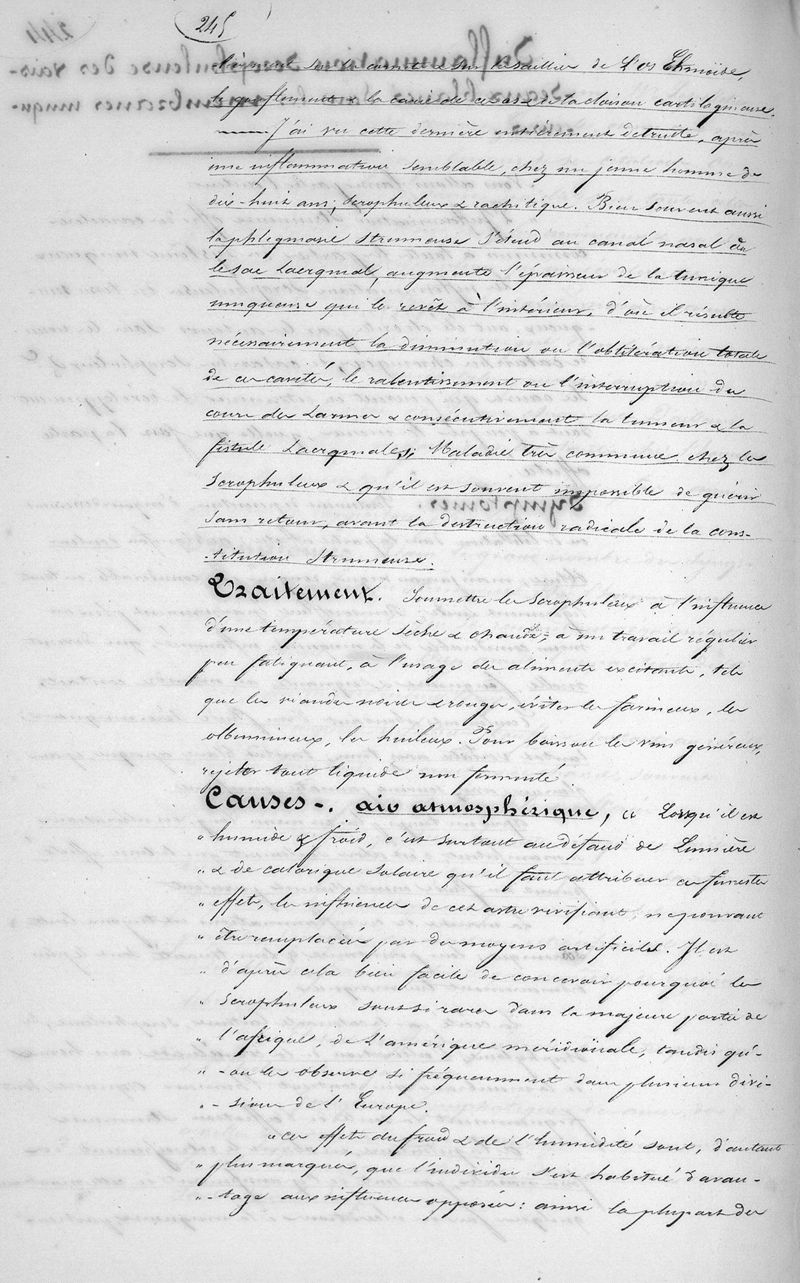 245
sur la carnet & les de L'os Ethmoïde
le gonflement & la carie de ces os & de la cloison cartilagineuse.
J'ai vu cette dernière entièrement détruite, après
une inflammation semblable, chez un jeune homme de
dix-huit ans, scrophuleux & rachitique. Bien souvent aussi
la phlegmasie strumeuse s'étend au canal nasal &
le sac Lacrymal, augmente l'épaisseur de la tunique
muqueuse qui le revêt à l'intérieur, d'où il résulte
nécessairement la diminution ou l'oblitération totale
de ces cavités, le ralentissement ou l'interruption du
cours des Larmes & consécutivement la tumeur & la
fistule Lacrymales, Maladie très commune chez les
scrophuleux & qu'il est souvent impossible de guérir
sans retour, avant la destruction radicale de la cons-
-titution Strumeuse.
Traitement. Soumettre les scrophuleux à l'influence
d'une température sèche & chaude, à un travail régulier
peu fatiguant, à l'usage des aliments excitants, tels
que les viandes noires & rouges, éviter les farineux, les
albumineux, les huileux. Pour boisson les vins généreux,
rejeter tout liquide non fermenté.
Causes -. air atmosphérique, « Lorsqu'il est
" humide & froid, c'est surtout au défaut de Lumière
" & de calorique solaire qu'il faut attribuer ces funestes
" effets, les influences de cet astre vivifiant, ne pouvant
" être remplacées par des moyens artificiels. Il est
" d'après cela bien facile de concevoir pourquoi les
" scrophuleux sont si rares dans la majeure partie de
" l'afrique, de L'amérique méridionale, tandis qu'-
" -on les observe si fréquemment dans plusieurs divi-
" -sions de l'Europe.
" ces effets du froid & de l'humidité sont, d'autant
" plus marqués, que l'individu s'est habitué d'avan-
" -tage aux influences opposées : ainsi la plupart des